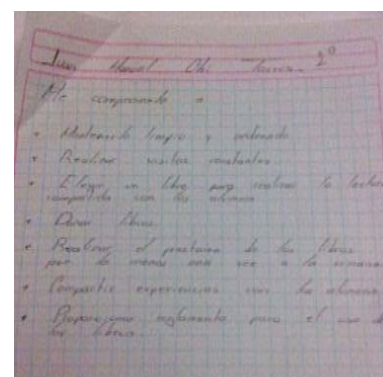 Juan Manuel Chi 2º
Me comprometo a
• Mantenerlo limpio y ordenado
• Realizar visitas constantes
• Elegir un libro para realizar la lectura
compartida con los alumnos
• Donar libros.
• Realizar el prestamo de los libros
por lo menos una vez a la semana
• Compartir experiencias con los alumnos
• reglamento para el uso de
los libros.